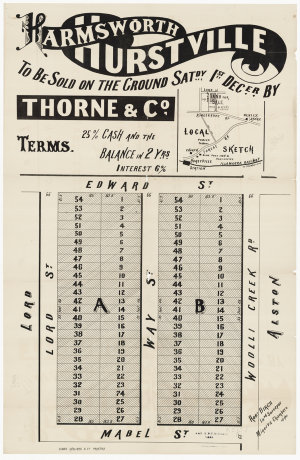 HARMSWORTH
HURSTVILLE
TO BE SOLD ON THE GROUND SATDY 1ST DECER BY
THORNE & CO.
TERMS.
25% CASH AND THE
BALANCE IN 2 YRS
INTEREST 6%
LOCAL
SKETCH
EDWARD ST
54 1
53 2
52 3
51 4
50 5
49 6
48 7
47 8
46 9
45 10
44 11
43 12
42 13
41 14
40 15
39 16
38 17
37 18
36 19
35 20
34 21
33 22
32 23
31 24
30 25
29 26
28 27
A
54 1
53 2
52 3
51 4
50 5
49 6
48 7
47 8
46 9
45 10
44 11
43 12
42 13
41 14
40 15
39 16
38 17
37 18
36 19
35 20
34 21
33 22
32 23
31 24
30 25
29 26
28 27
B
LORD
LORD ST
WAY ST
WOOLLI CREEK RD
ALSTON
MABEL ST